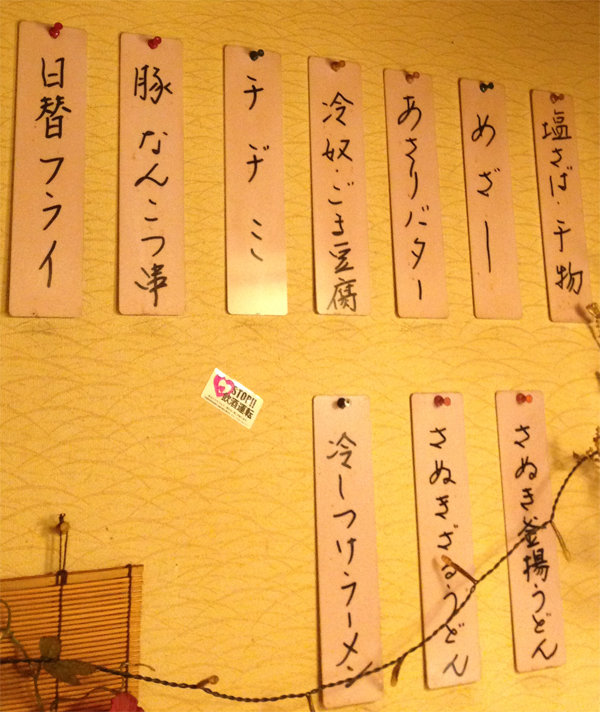 塩さば・干物
めざし
あさりバター
冷奴・ごま豆腐
チヂミ
豚なんこつ串
日替フライ
さぬき釜揚うどん
さぬきざるうどん
冷しつけラーメン
STOP!!
飲酒運転